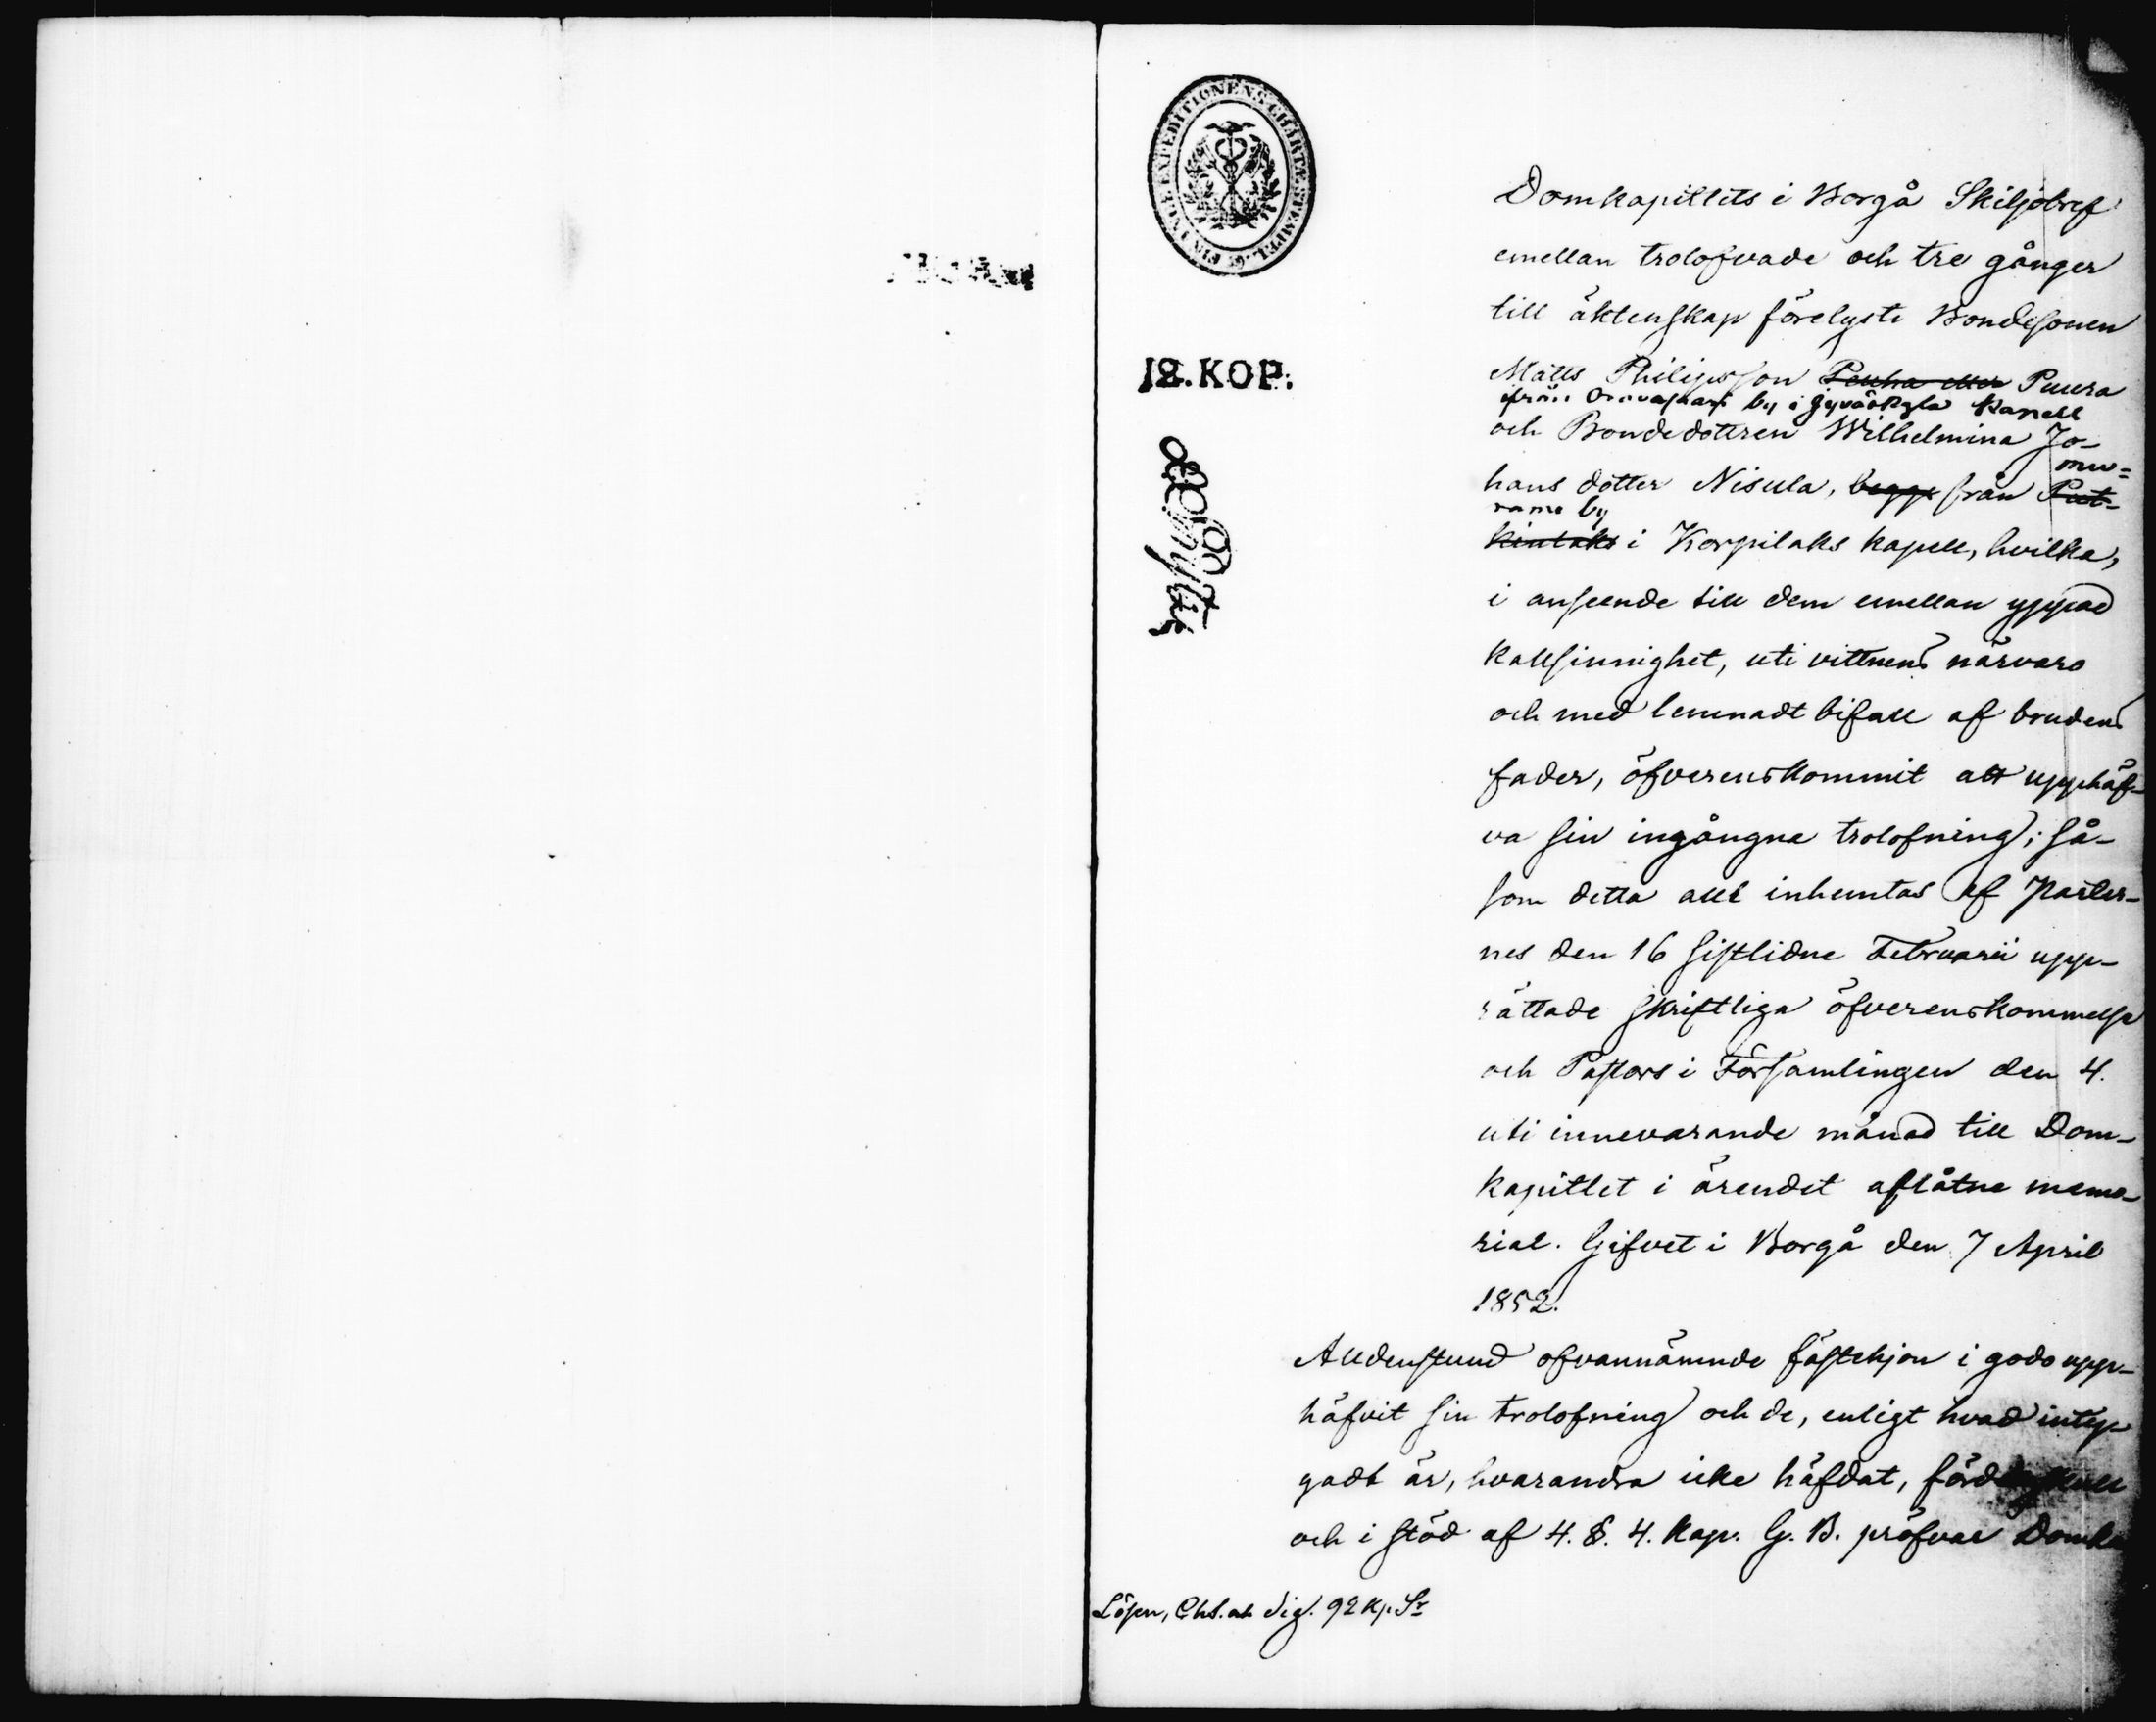 FINLANDS EXPEDITIONENS CHARTÆ STEMPEL
12. KOP.
Domkapitlets i Borgå Skiljobref
emellan trolofvade och tre gånger
till äktenskap förelyste Bondesonen
Matts Philipsson Puura
från Oravasaari by i Jyväskylä Kapell
och Bondedottren Wilhelmina Jo-
hans dotter Nisula, begge från Put-
mu=
rame by
kinlaks i Korpilaks kapell, hvilka,
i anseende till dem emellan yppad
kallsinnighet, uti vittnens närvaro
och med lemnadt bifall af brudens
fader, öfverenskommit att upphäf-
va sin ingångna trolofning; så-
som detta allt inhemtas af Parter-
nes den 16 sistlidne Februarii upp-
rättade skriftliga öfverenskommelse
och Pastors i Församlingen den 4.
uti innevarande månad till Dom-
kapitlet i ärendet aflåtne memo-
rial. Gifvet i Borgå den 7 April
1852.
Alldenstund ofvannämnde fästehjon i godo upp-
häfvit sin trolofning och de, enligt hvad inty-
gadt är, hvarandra icke häfdat, fördenskull
och i stöd af 4. §. 4. Kap. G. B. pröfvar Domka
Lösen, Chs. och Sig. 92 Kp. Sr